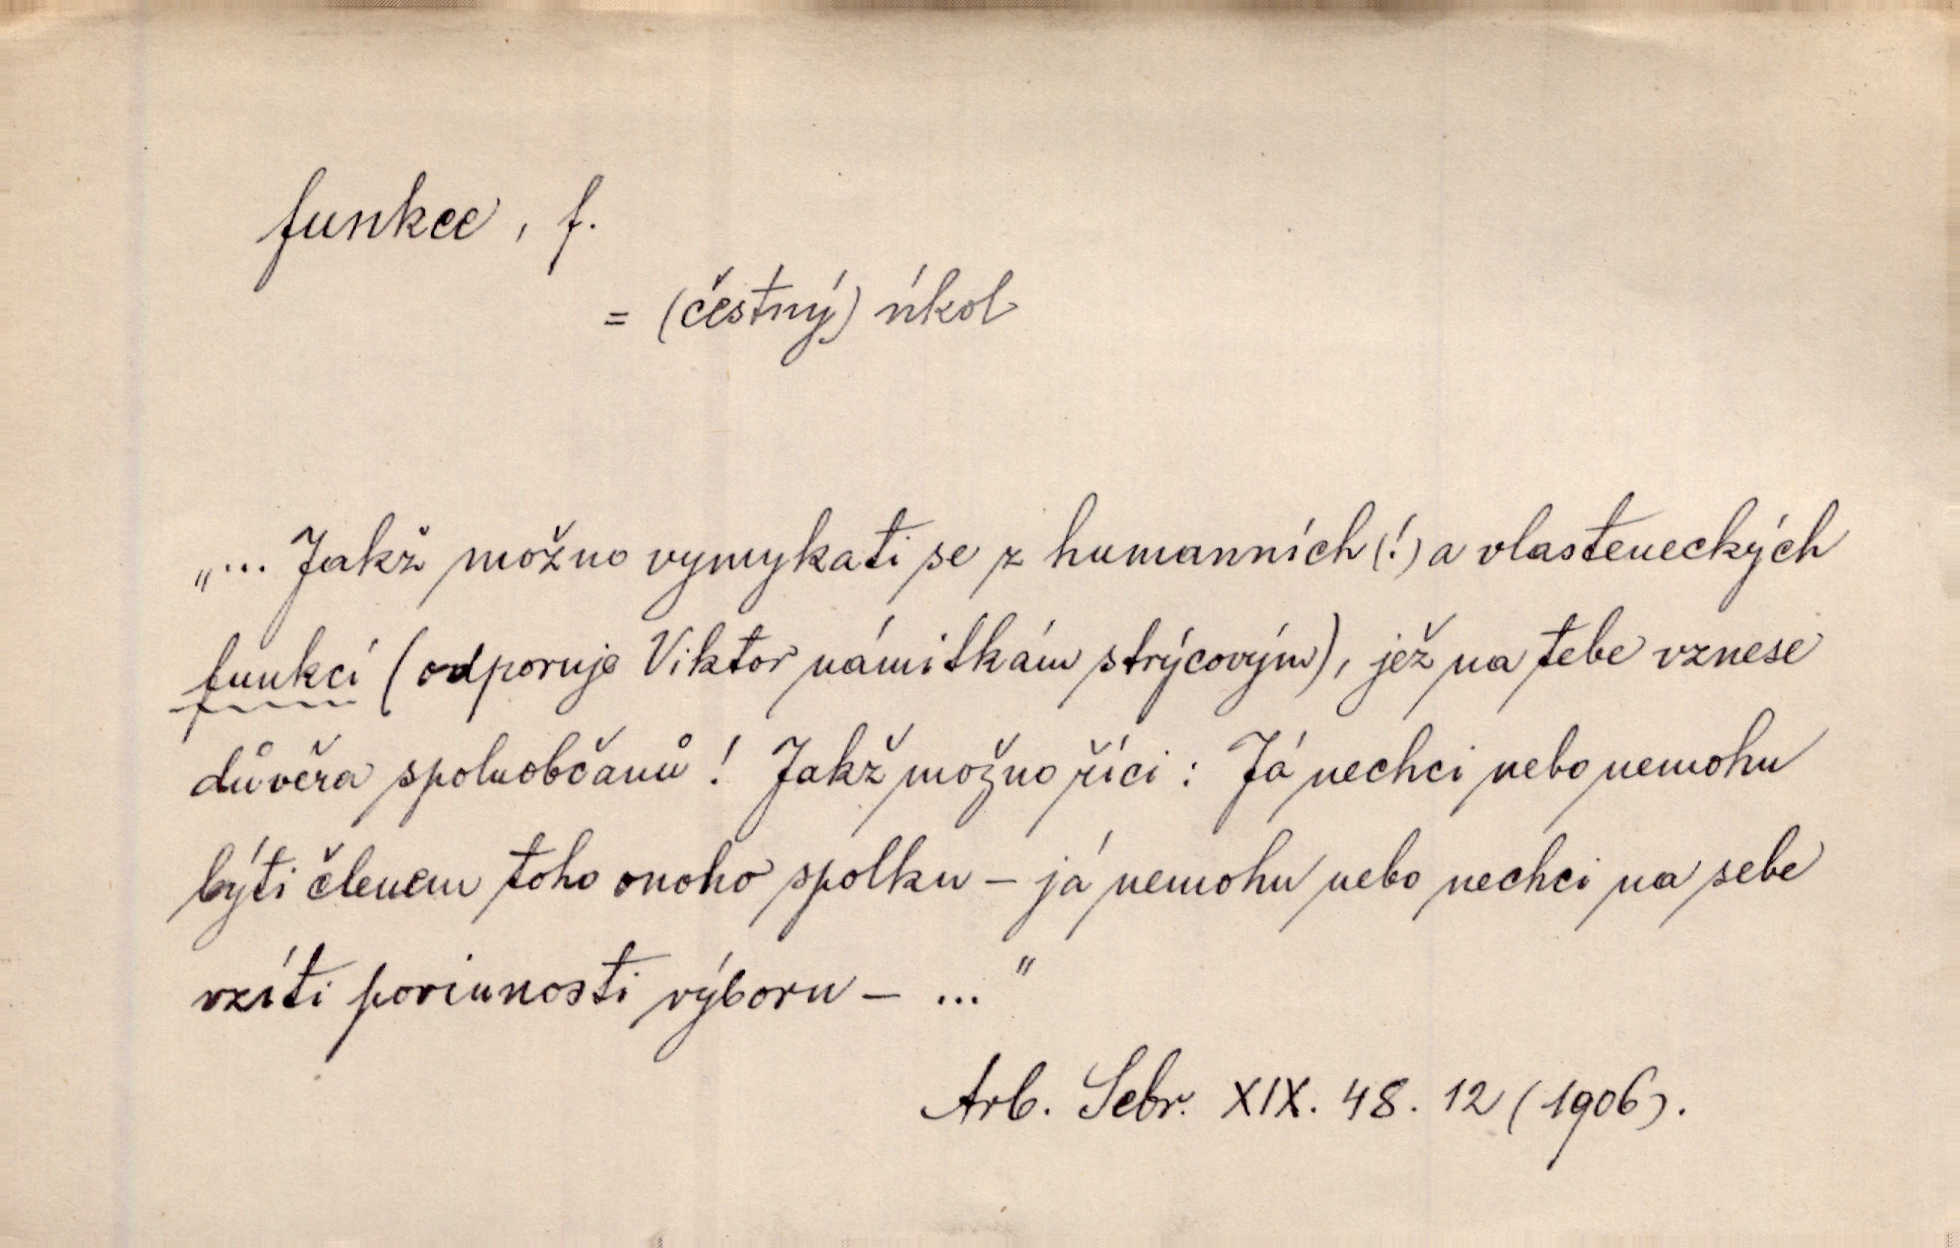 funkce, f.
= (čestný) úkol
„... Jakž možno vymykati se z humanních (!) a vlasteneckých
funkcí (odporuje Viktor námitkám strýcovým), jež na tebe vznese
důvěra spoluobčanů! Jakž možno říci: Já nechci nebo nemohu
býti členem toho onoho spolku – já nemohu nebo nechci na sebe
vzíti povinnosti výboru – ..."
Arb. Sebr. XIX. 48. 12 (1906).